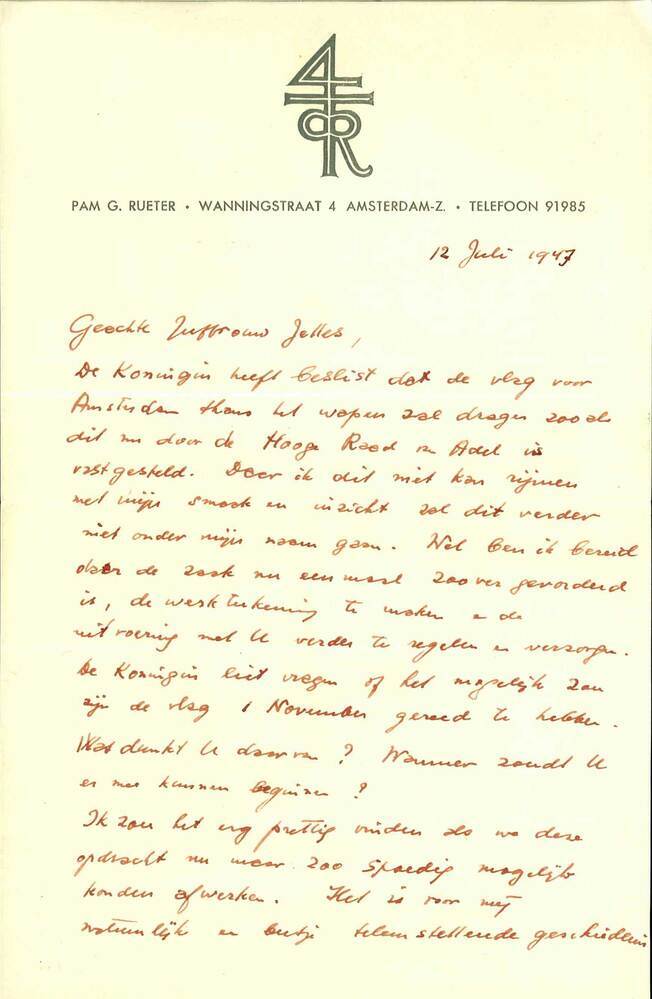 PAM G. RUETER • WANNINGSTRAAT 4 AMSTERDAM-Z. • TELEFOON 91985
12 Juli 1947
Geachte Juffrouw Jelles,
De Koningin heeft beslist dat de vlag voor
Amsterdam thans het wapen zal dragen zooals
dit nu door de Hooge Raad van Adel is
vastgesteld. Daar ik dit niet kan rijmen
met mijn smaak en inzicht zal dit verder
niet onder mijn naam gaan. Wel ben ik bereid
daar de zaak nu eenmaal zoover gevorderd
is, de werktekening te maken en de
uitvoering met U verder te regelen en verzorgen.
De Koningin liet vragen of het mogelijk zou
zijn de vlag 1 November gereed te hebben.
Wat dunkt U daarvan? Wanneer zoudt U
er mee kunnen beginnen?
Ik zou het erg prettig vinden als we deze
opdracht nu maar zoo spoedig mogelijk
konden afwerken. Het is voor mij
natuurlijk en beetje teleurstellende geschiedenis